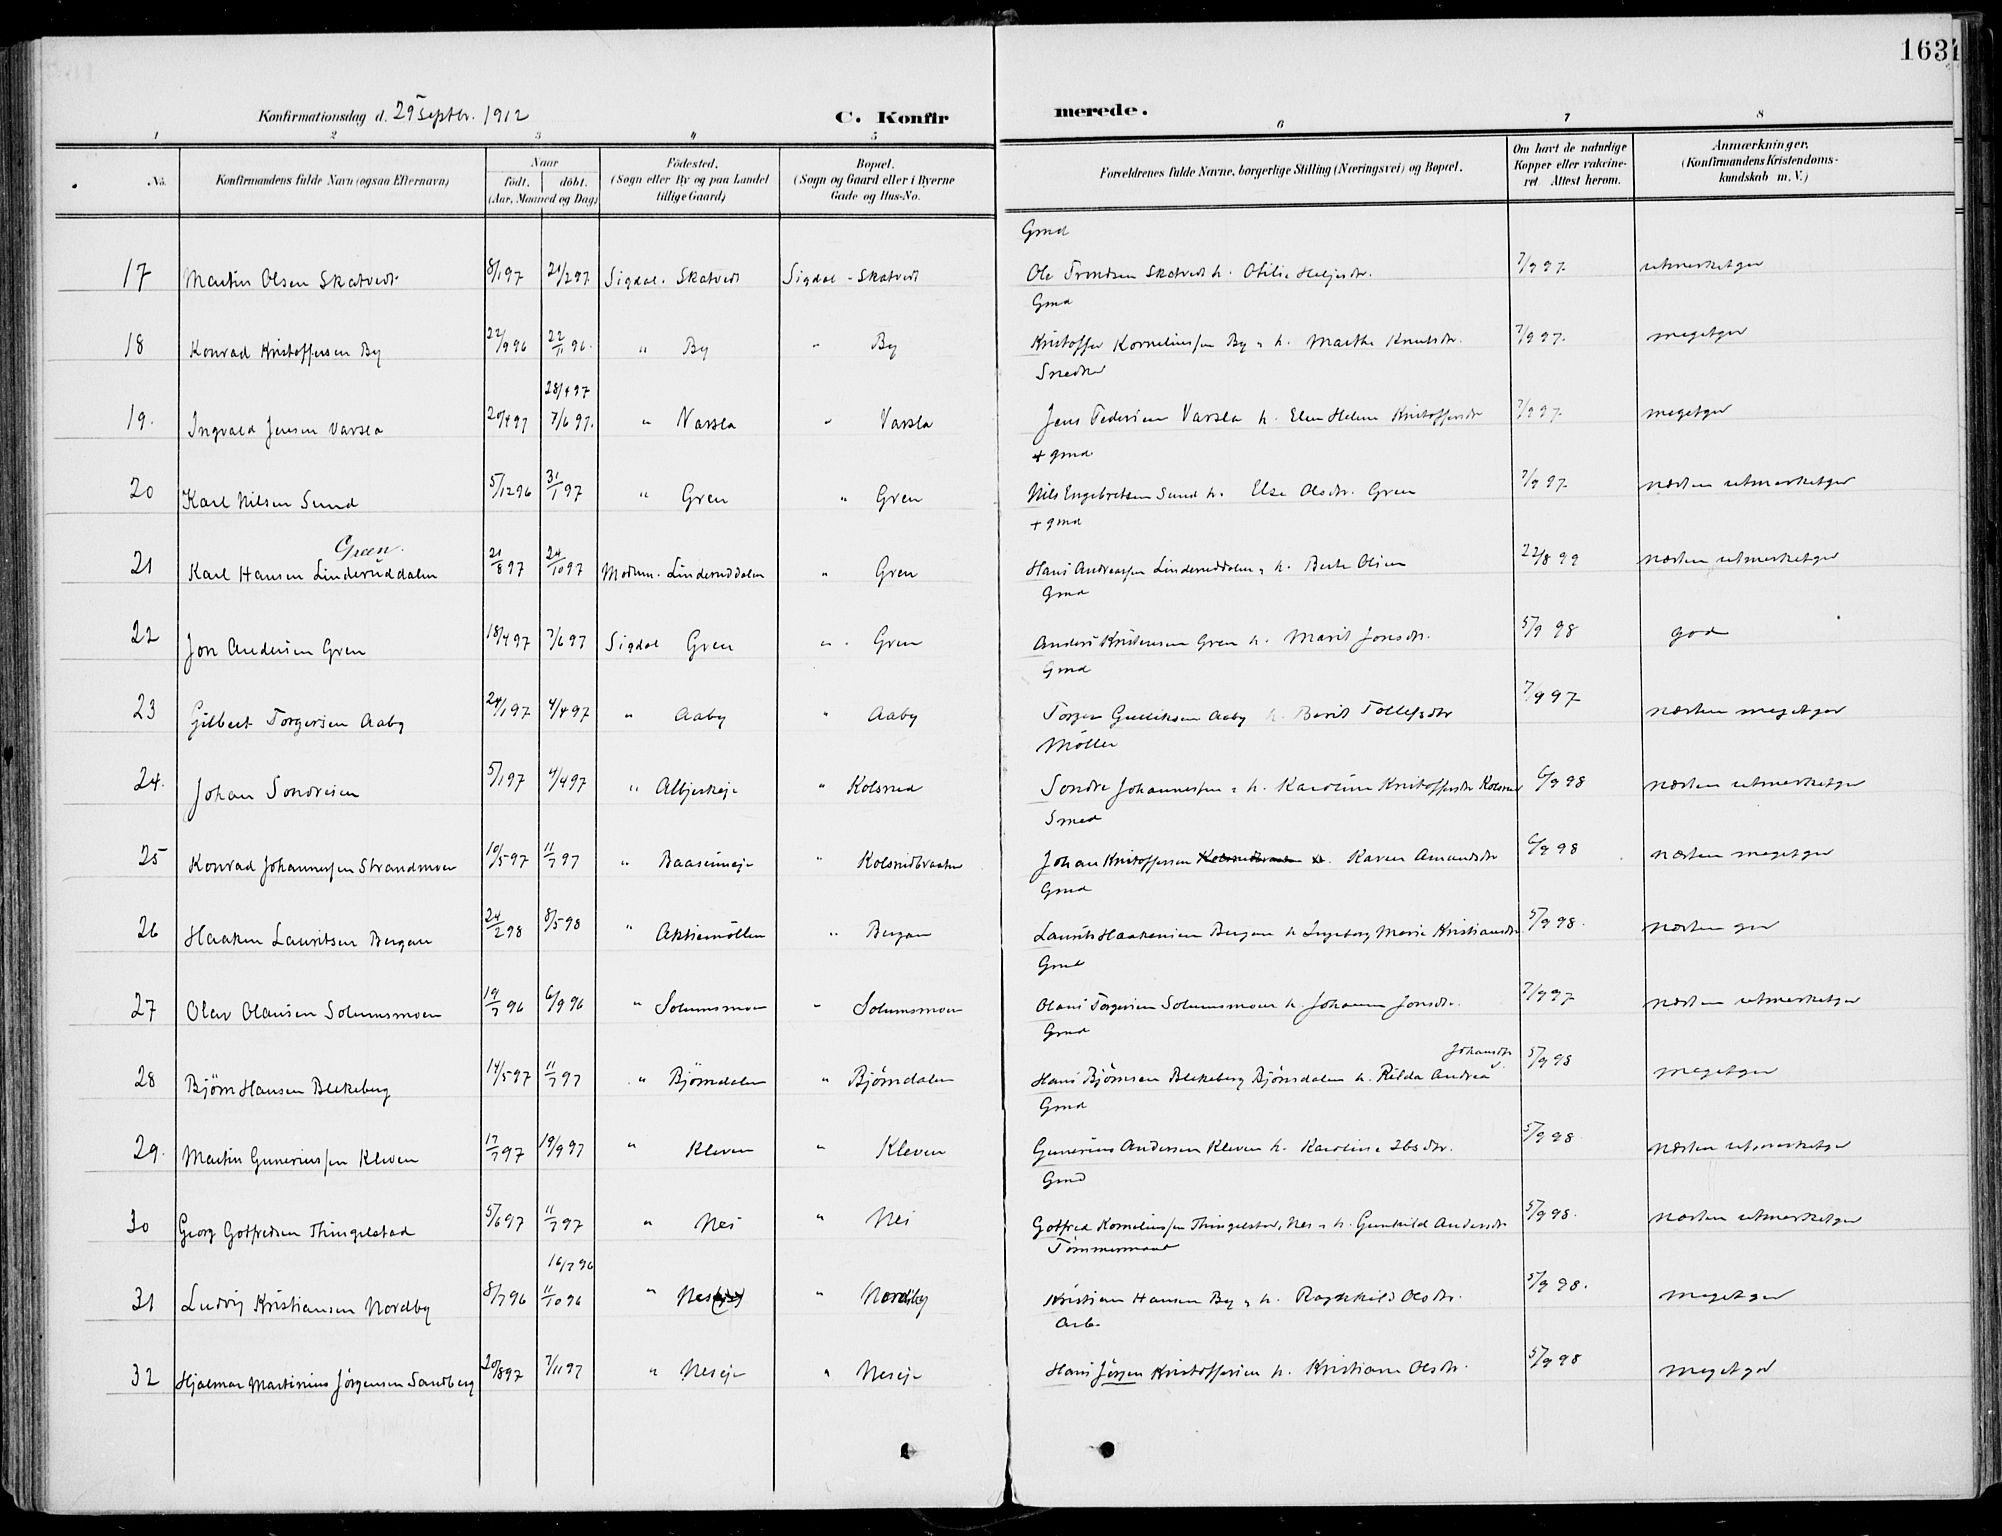 163
Konfirmationsdag d. 29 Septbr. 1912
C. Konfirmerede.
1 2 3 4 5 6 7 8
No. | Konfirmandens fulde Navn (ogsaa Efternavn) | Naar født. | døbt. (Aar, Maaned og Dag) | Fødested. (Sogn eller By og paa Landet tillige Gaard) | Bopæl. (Sogn og Gaard eller i Byerne Gade og Hus-No. | Forældrenes fulde Navne, borgerlige Stilling (Næringsvei) og Bopæl. | Om havt de naturlige Kopper eller vakcineret. Attest herom. | Anmærkninger. (Konfirmandens Kristendomskundskab m. V.)
Gmd
17 Martin Olsen Skatvedt 8/1 97 21/2 97 Sigdal - Skatvedt Sigdal - Skatvedt Ole Trondsen Skatvedt h. Otilie Helgesdr. 7/9 97 utmerketgod
Gmd
18 Konrad Kristoffersen By 22/9 96 22/11 96. " By " By Kristoffer Korneliussen By h. Marthe Knutsdr. 7/9 97. megetgod
Snedker
28/4 97
19. Ingvald Jensen Varsla 20/4 97 7/6 97. " Varsla " Varsla Jens Pedersen Varsla h. Elen Helene Kristoffersdr 7/9 97. megetgod
+ gmd
20 Karl Nilsen Sund 5/12 96 31/1 97 " Gren " Gren Nils Engebretsen Sund h. Else Olsdtr. Gren 7/9 97. næsten utmerketgod
+ gmd
Green.
21 Karl Hansen Linderuddalen 21/8 97 24/10 97 Modum. Linderuddalen " Gren Hans Andreassen Linderuddalen h. Berte Olsen 22/8 99 næsten utmerketgod
Gmd
22 Jon Andersen Gren 18/4 97 7/6 97 Sigdal Gren " Gren Anders Kristensen Gren h. Marit Jonsdtr. 5/9 98 god
Gmd
23 Gilbert Torgersen Aaby 24/1 97 4/4 97 " Aaby " Aaby Torger Gulliksen Aaby h. Berit Tollefsdtr 7/9 97 næsten megetgod
Møller
24. Johan Sondresen 5/1 97 4/4 97 " Albjerkeje " Kolsrud Sondre Johannessen h. Karoline Kristoffersdtr Kolsrud 6/9 98 næsten utmerketgod
Smed
25 Konrad Johannessen Strandmoen 10/5 97 11/7 97 " Baaseimeje " Kolsrudbraaten Johan Kristoffersen Karen Amundsdtr 6/9 98 næsten megetgod
Gmd
26 Haaken Lauritsen Bergan 24/2 98 8/5 98 " Aktiemøllen " Bergan Laurits Haakensen Bergan h Ingeborg Marie Kristiansdtr 5/9 98. næsten god
Gmd
27 Olav Olausen Solumsmoen 19/7 96 6/9 96 " Solumsmoen " Solumsmoen Olaus Torgersen Solumsmoen h. Johanne Jonsdtr. 7/9 97 næsten utmerketgod
Gmd
Johansdtr
28 Bjørn Hansen Blekeberg 14/5 97 11/7 97 " Bjørndalen " Bjørndalen Hans Bjørnsen Blekeberg Bjørndalen h. Rilda Andrea 5/9 98 megetgod
Gmd
29. Martin Guneriussen Kleven 17/7 97 19/9 97 " Kleven " Kleven Gunerius Andersen Kleven h. Karoline Ibsdtr. 5/9 98. næsten utmerketgod
Gmd
30 Georg Gotfredsen Thingelstad 5/6 97 11/7 97 " Nes " Nes Gotfred Korneliussen Thingelstad, Nes h. Gunhild Andersdtr 5/9 98. næsten utmerketgod
Tømmermand
16/7 96
31 Ludvig Kristiansen Nordby 8/7 96 11/10 96 " Nes " Nordby Kristian Hansen By h. Ragnhild Olsdtr. 5/9 98. megetgod
Arb.
32 Hjalmar Martinius Jørgensen Sandberg 20/8 97 7/11 97 " Neseje " Neseje Hans Jørgen Kristoffersen h. Kristiane Olsdtr. 5/9 98 megetgod